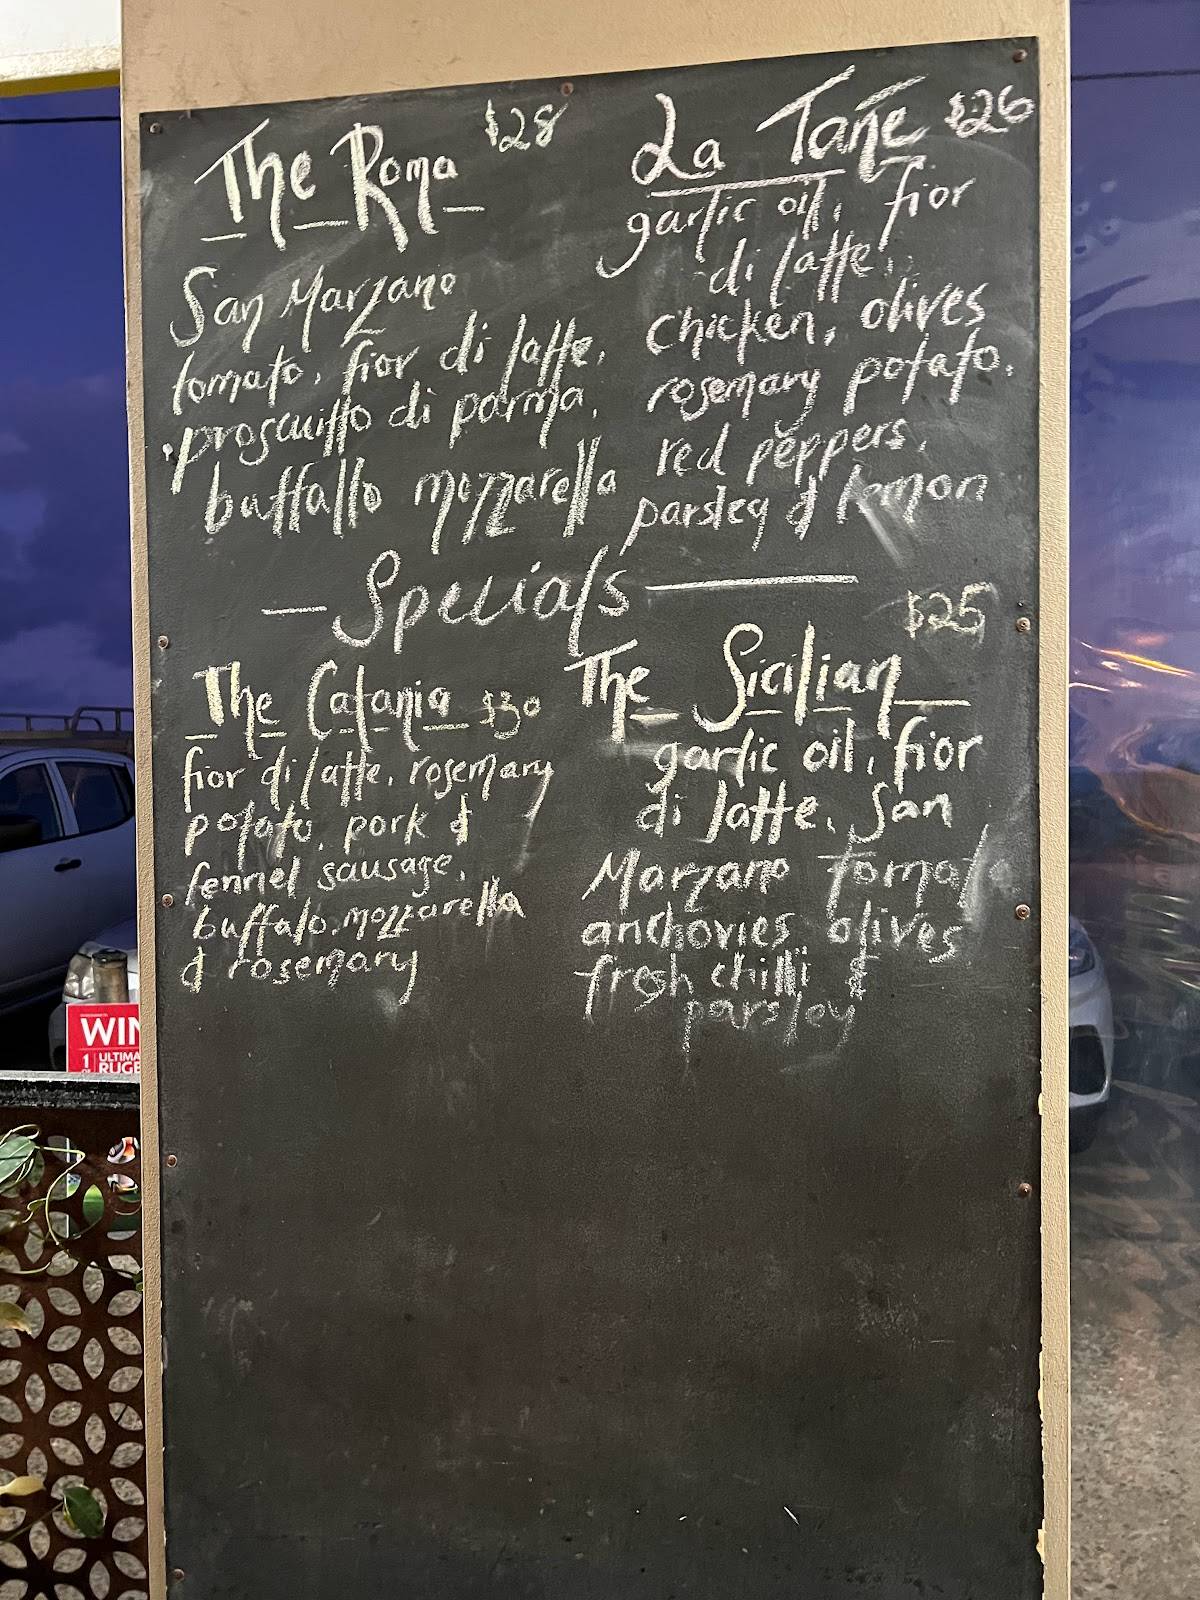 The Roma $28
San Marzano
tomato, fior di latte,
prosciutto di parma,
buffallo mozzarella
La Tane $26
garlic oil, fior
di latte,
chicken, olives
rosemary potato,
red peppers,
parsley & lemon
Specials
The Catania $30
fior di latte, rosemary
potato, pork &
fennel sausage,
buffalo mozzarella
& rosemary
The Sicilian $25
garlic oil, fior
di latte, San
Marzano tomato
anchovies olives
fresh chilli &
parsley
WIN
1
ULTIMA
RUGB